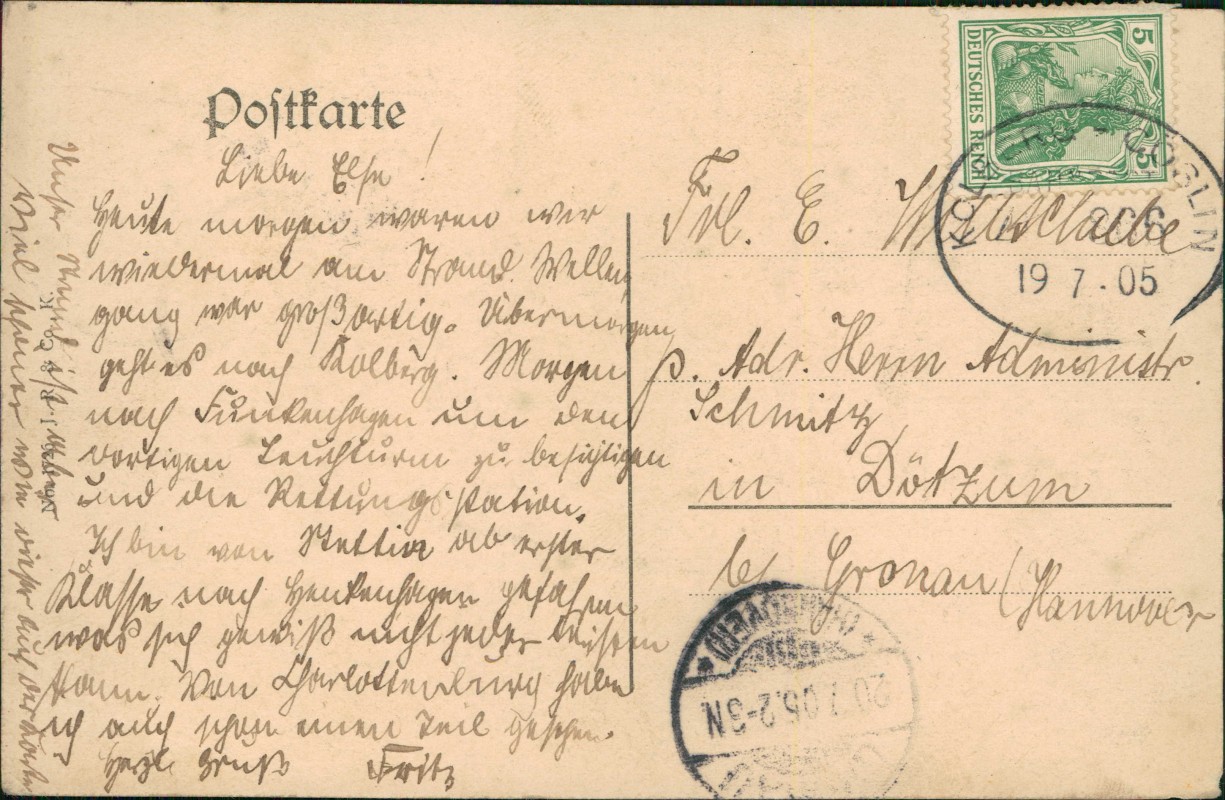 Postkarte
Liebe Else!
Heute morgen waren wir
wiedermal am Strand. Wellen
gang war großartig. Übermorgen
geht es nach Kolberg. Morgen
nach Funkenhagen um den
dortigen Leuchturm zu besichtigen
und die Rettungsstation.
Ich bin von Stettin ab erster
Klasse nach Henkenhagen gefahren
was sich gewiß nicht jeder leisten
kann. Von Charlottenburg habe
ich auch schon einen Teil gesehen.
Herzl. Gruß Fritz
Unser Strand ist
viel schöner wie dieser auf der Karte
DEUTSCHES REICH
5 5
CÖSLIN
19 7 . 05
Frl. E.
p. Adr. Herrn Administr.
Schmitz
in Dötzum
b/ Gronau (Hannover
20.7.05.2-3N